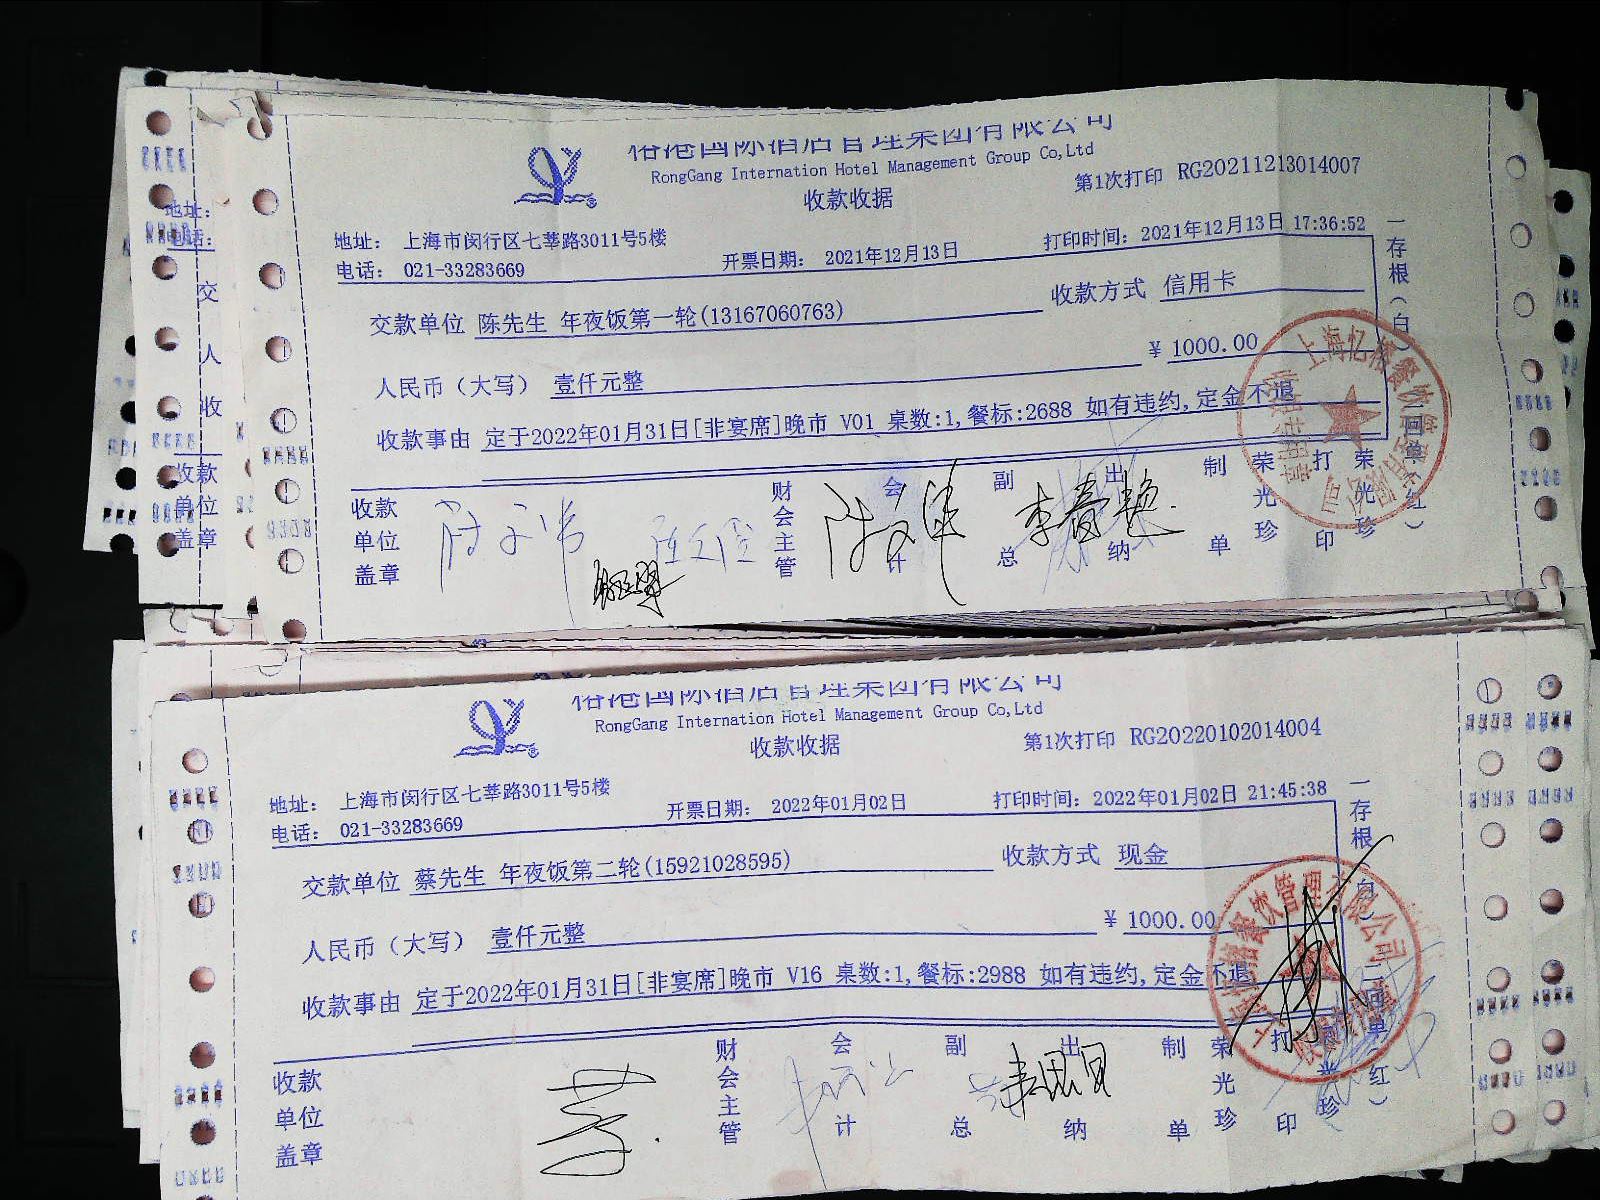 RongGang Internation Hotel Management Group Co,Ltd
收款收据
第1次打印 RG20211213014007
地址: 上海市闵行区七莘路3011号5楼
电话: 021-33283669
开票日期: 2021年12月13日
打印时间: 2021年12月13日 17:36:52
交款单位 陈先生 年夜饭第一轮(13167060763)
收款方式 信用卡
人民币(大写) 壹仟元整
¥ 1000.00
收款事由 定于2022年01月31日[非宴席]晚市 V01 桌数:1,餐标:2688 如有违约,定金不退
收款单位盖章
财会主管
会计
副总
出纳
制单
荣光珍
打印
荣光珍
一存根(白)
地址:
交
人
收
收款
单位
盖章
国际酒店管理集团有限公司
RongGang Internation Hotel Management Group Co,Ltd
收款收据
第1次打印 RG20220102014004
地址: 上海市闵行区七莘路3011号5楼
电话: 021-33283669
开票日期: 2022年01月02日
打印时间: 2022年01月02日 21:45:38
交款单位 蔡先生 年夜饭第二轮(15921028595)
收款方式 现金
人民币(大写) 壹仟元整
¥ 1000.00
收款事由 定于2022年01月31日[非宴席]晚市 V16 桌数:1,餐标:2988 如有违约,定金不退
收款单位盖章
财会主管
会计
副总
出纳
制单
荣光珍
打印
一存根